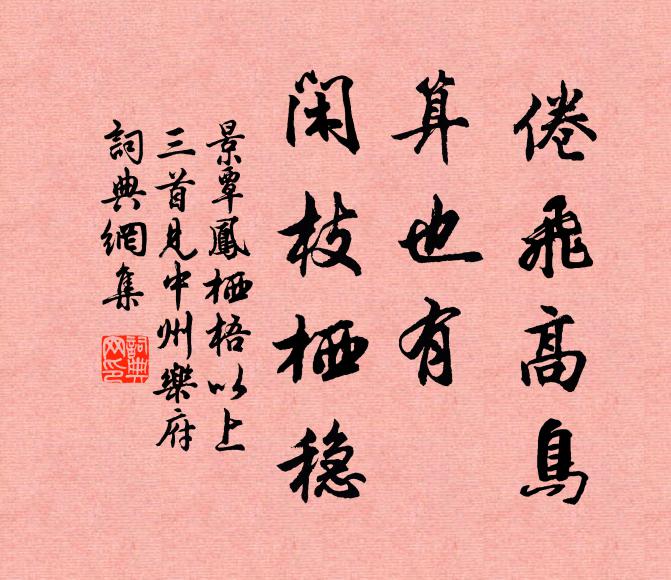 倦飛高鳥
算也有
閑枝栖穩
景覃鳳栖梧以上
三首見中州樂府
詞典網集
詞典網印